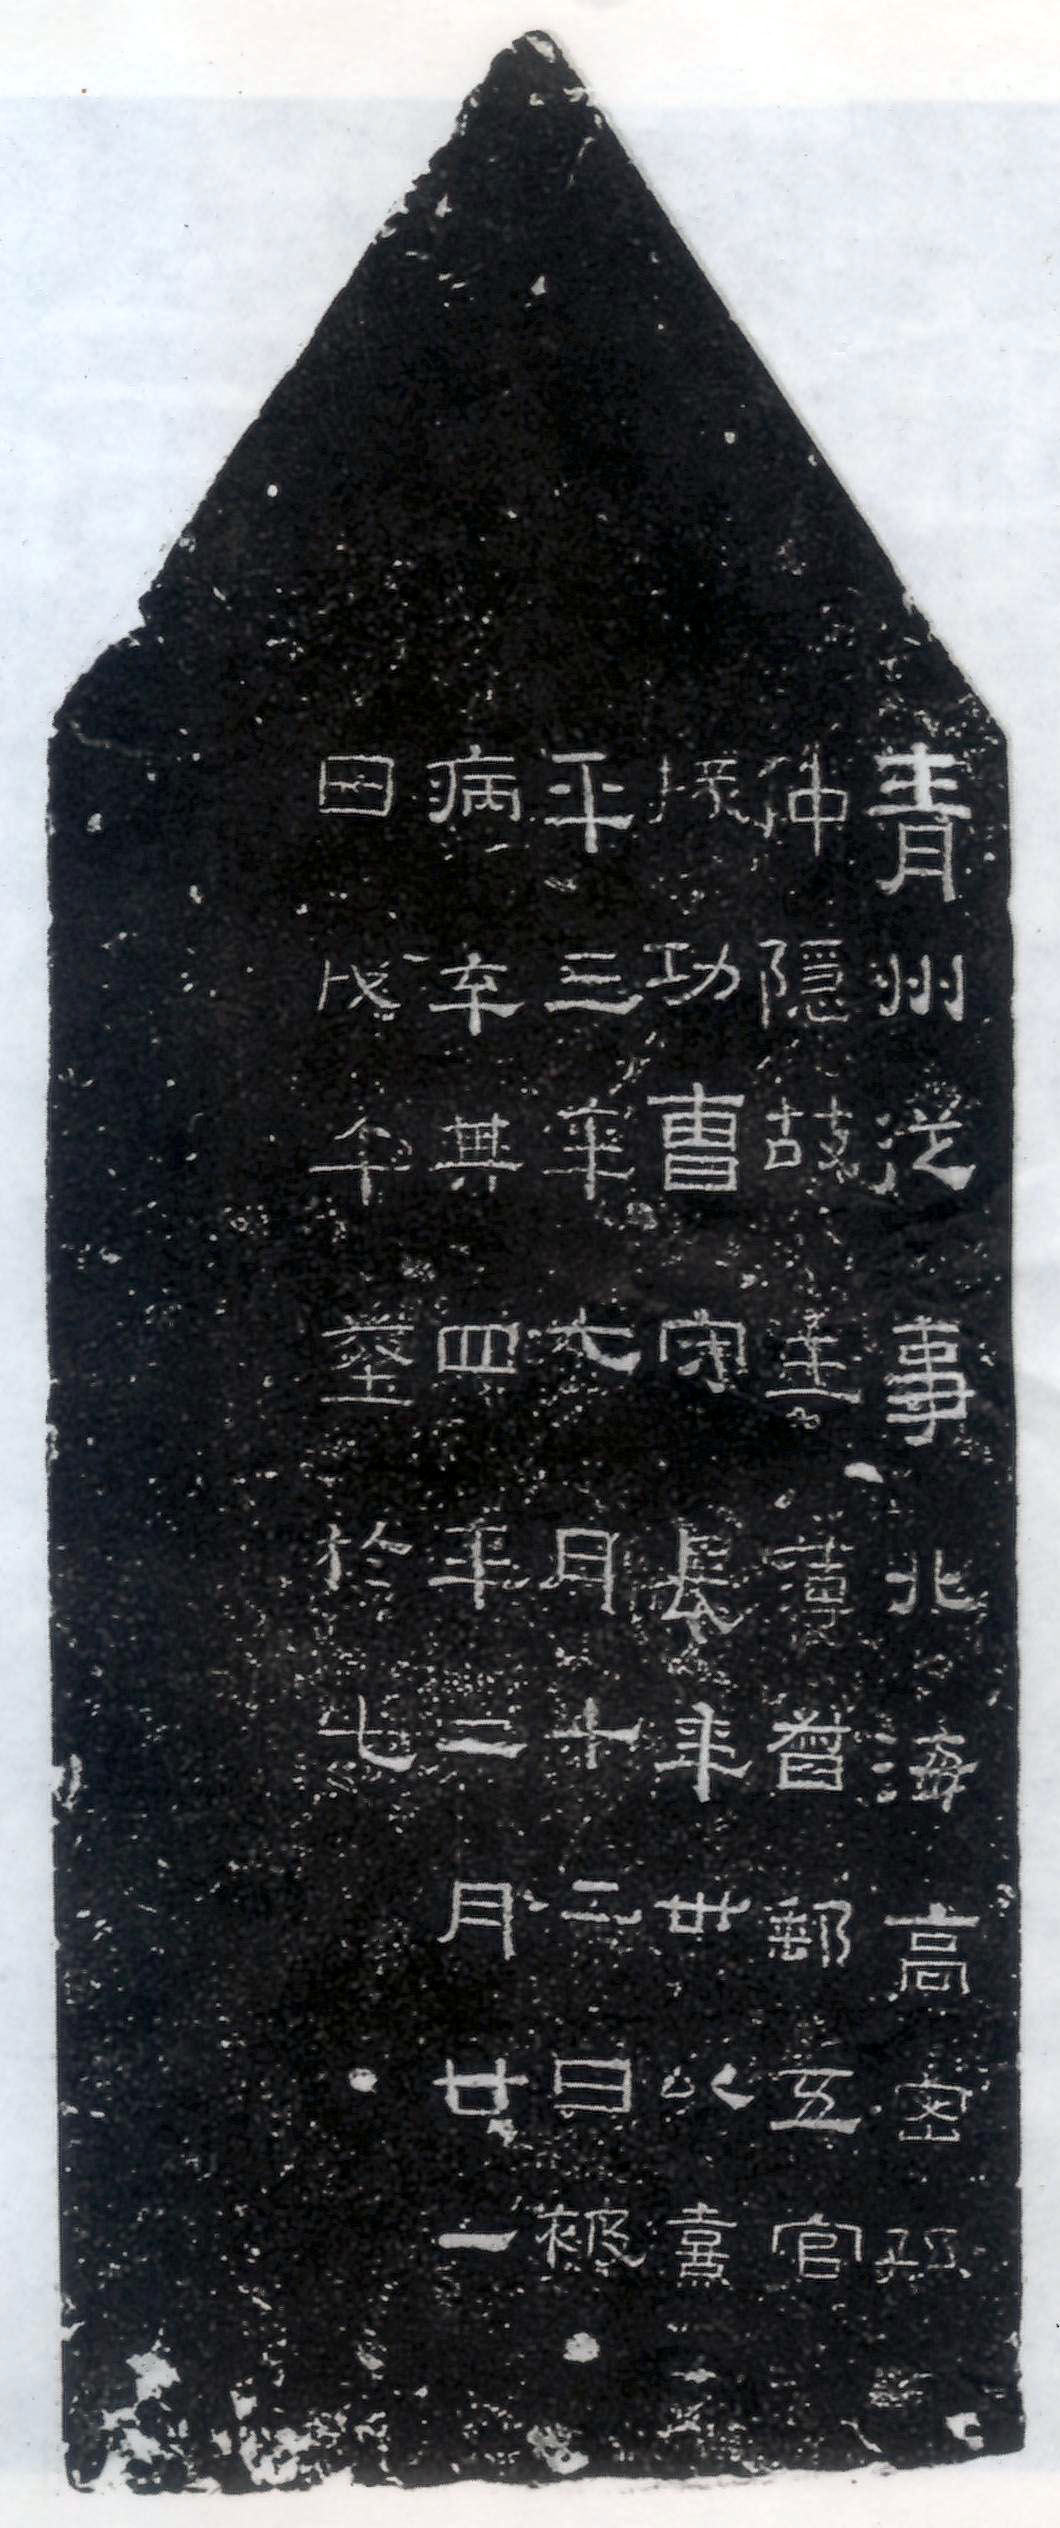 青州從事北海高密孫
仲隱故主簿督郵五官
掾功曹守長年卅以熹
平三年月十二日被
病卒其四年二月廿一
日戊午葬於此